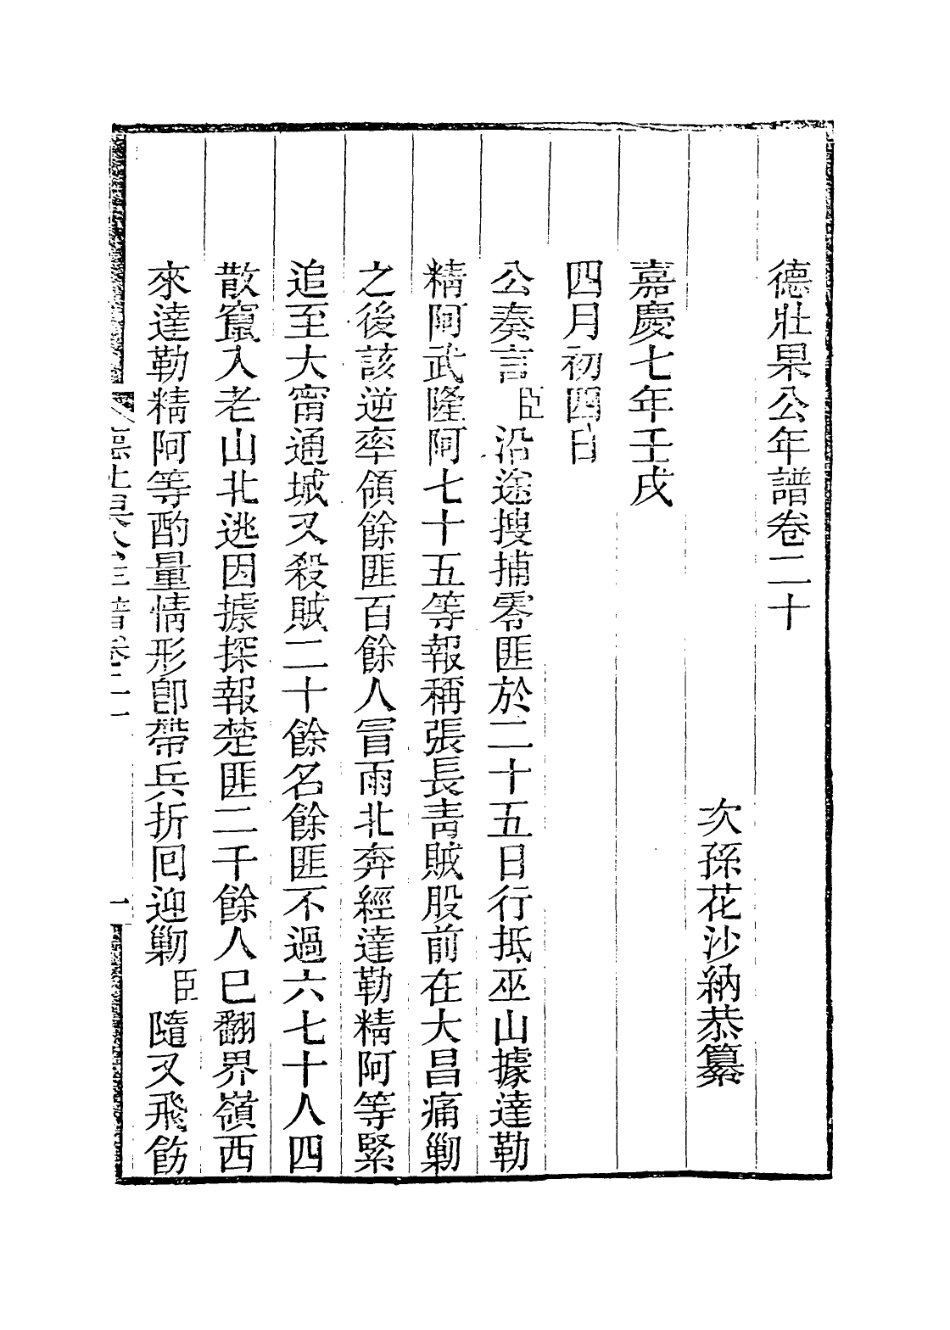 德壯果公年譜卷二十
次孫花沙納恭纂
嘉慶七年壬戌
四月初四日
公奏言臣沿途搜捕零匪於二十五日行抵巫山據達勒
精阿武隆阿七十五等報稱張長青賊股前在大昌痛剿
之後該逆率領餘匪百餘人冒雨北奔經達勒精阿等緊
追至大甯通城又殺賊二十餘名餘匪不過六七十人四
散竄入老山北逃因據探報楚匪二千餘人已翻界嶺西
來達勒精阿等酌量情形卽帶兵折回迎剿臣隨又飛飭